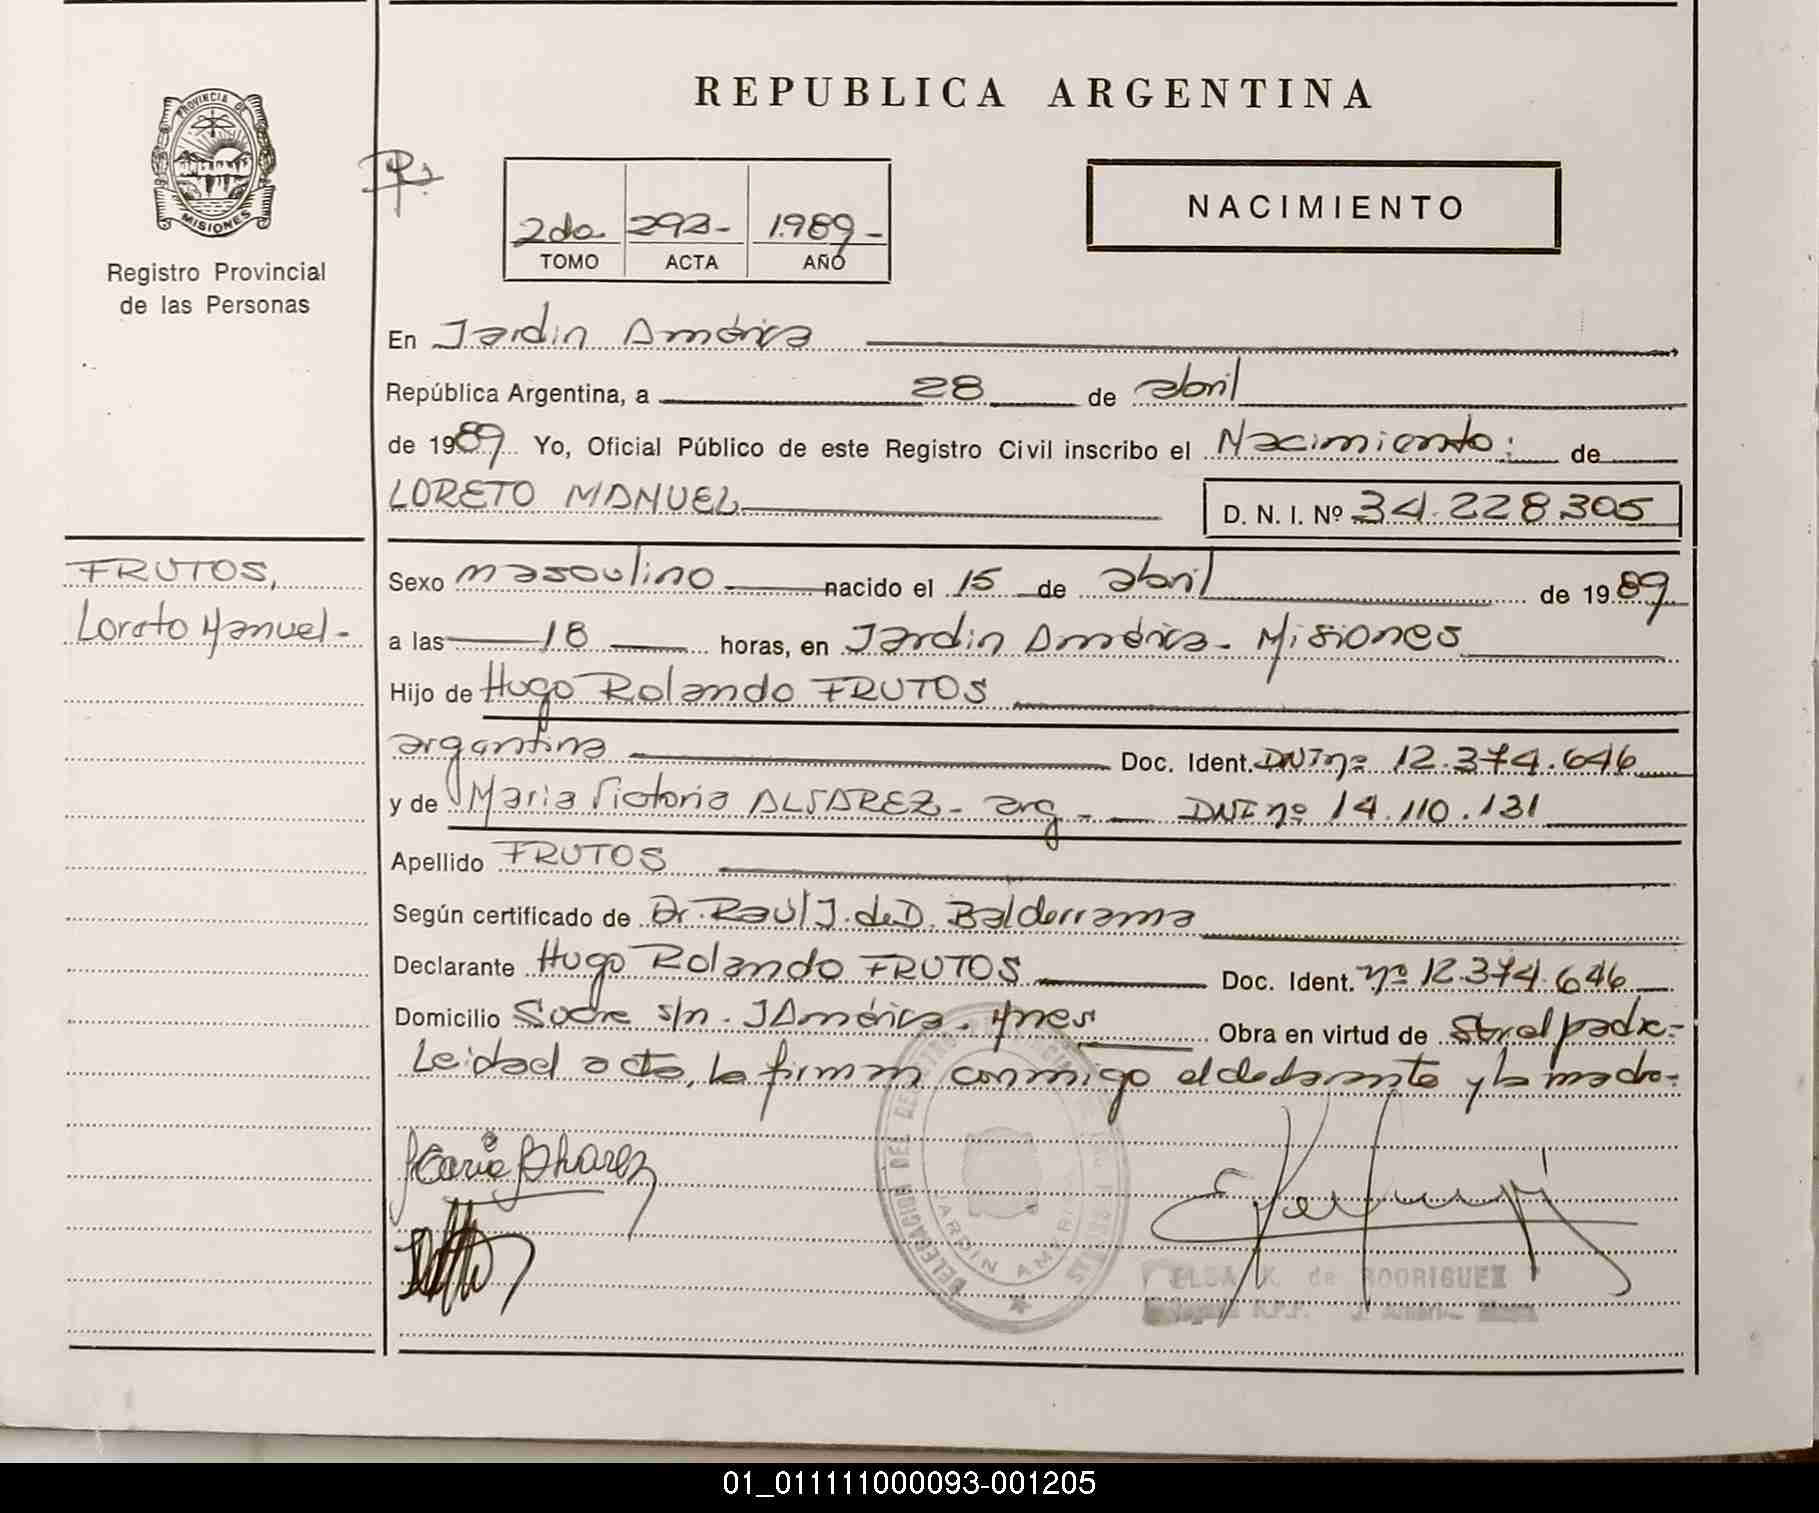 REPUBLICA ARGENTINA
PROVINCIA DE
MISIONES
Registro Provincial
de las Personas
2do 293- 1.989-
TOMO ACTA AÑO
NACIMIENTO
En Jardin América
República Argentina, a 28 de abril
de 1989 Yo, Oficial Público de este Registro Civil inscribo el Nacimiento: de
LORETO MANUEL D. N. I. Nº 34.228.305
FRUTOS,
Loreto Manuel-
Sexo masculino nacido el 15 de abril de 1989
a las 18 horas, en Jardin América- Misiones
Hijo de Hugo Rolando FRUTOS
argentina Doc. Ident. DNI nº 12.374.646
y de Maria Victoria ALVAREZ- arg- DNI nº 14.110.131
Apellido FRUTOS
Según certificado de Dr. Raúl J. de D. Balderrama
Declarante Hugo Rolando FRUTOS Doc. Ident. nº 12.374.646
Domicilio Sucre s/n. J América. Mnes Obra en virtud de ser el padre-
Leida el acta, la firman conmigo el declarante y la madre-
Maria Alvarez
DELEGACION DEL REGISTRO
JARDIN AMERICA
ELSA K. de RODRIGUEZ
01_011111000093-001205